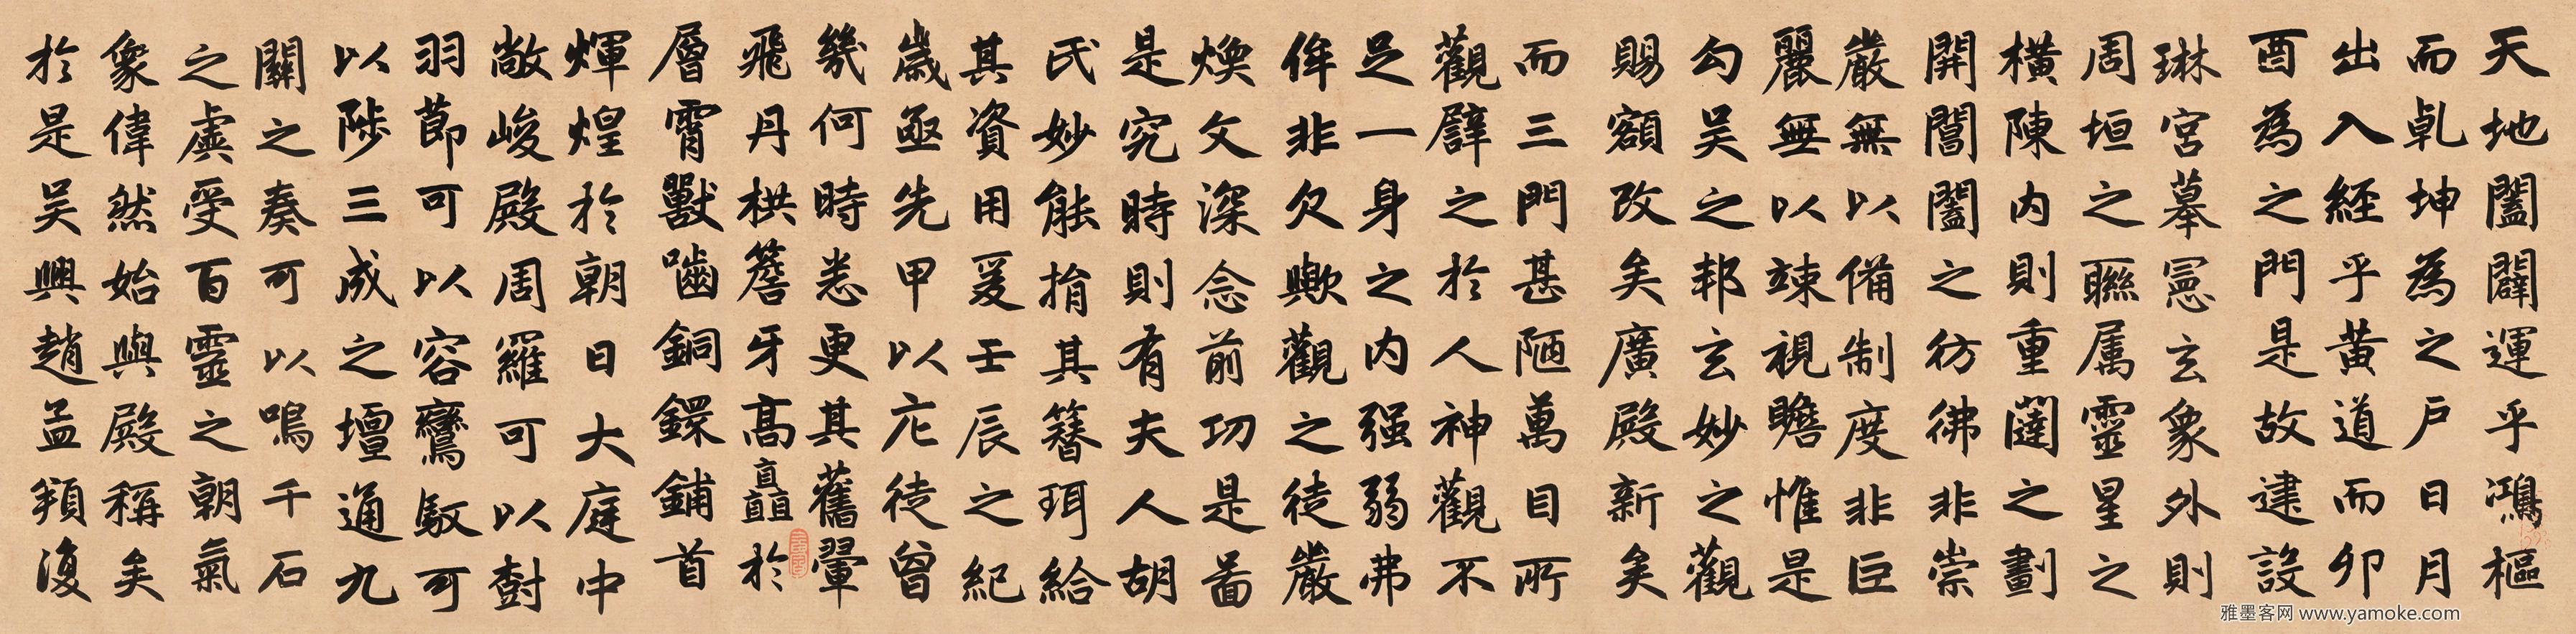 天地闔闢運乎鴻樞
而乹坤為之戶日月
出入經乎黃道而卯
酉為之門是故建設
琳宮摹憲玄象外則
周垣之聯属靈星之
橫陳内則重闥之劃
開閶闔之彷彿非崇
嚴無以備制度非巨
麗無以竦視瞻惟是
勾吴之邦玄妙之觀
賜額改矣廣殿新矣
而三門甚陋萬目所
觀譬之於人神觀不
足一身之内强弱弗
侔非欠歟觀之徒嚴
煥文深念前功是啚
是究時則有夫人胡
氏妙能捐其簪珥給
其資用爰壬辰之紀
歲亟先甲以庀徒曾
幾何時悉更其舊翬
飛丹栱簷牙高矗於
層霄獸嚙銅鐶鋪首
輝煌於朝日大庭中
敞峻殿周羅可以樹
羽莭可以容鸞馭可
以陟三成之壇通九
關之奏可以鳴千石
之虡受百靈之朝氣
象偉然始與殿稱矣
於是吴興趙孟頫復
雅墨客网 www.yamoke.com